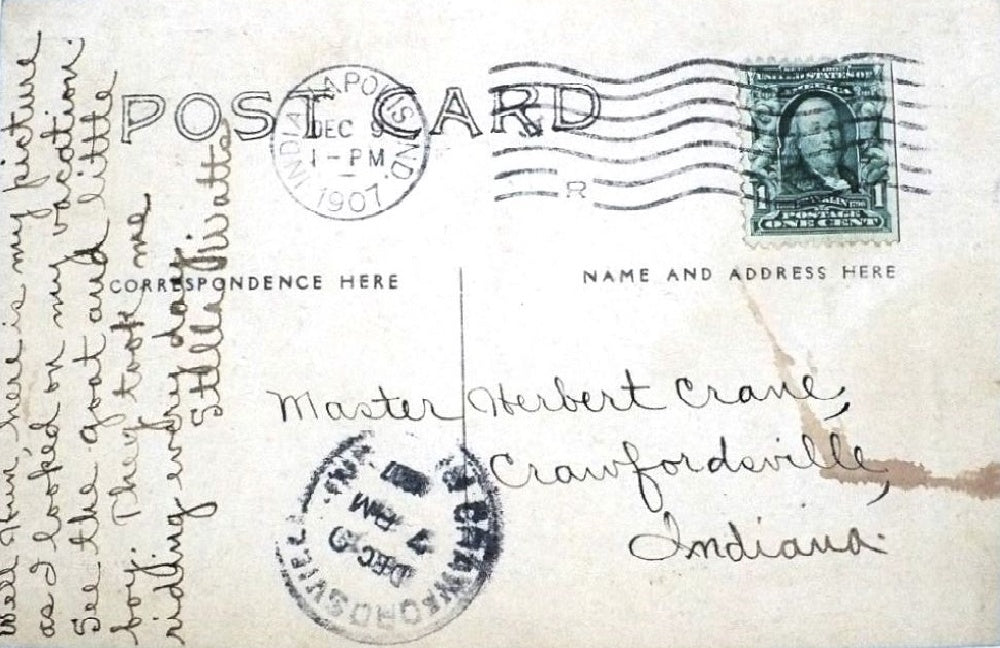 POST CARD
INDIANAPOLIS, IND.
DEC 9
1-PM
1907
UNITED STATES OF
AMERICA
1 1
FRANKLIN
POSTAGE
ONE CENT
R
CORRESPONDENCE HERE
NAME AND ADDRESS HERE
Well Hun, here is my picture
as I looked on my vacation.
See the goat and little
boy. They took me
riding every day.
Stella Watts
Master Herbert Crane,
Crawfordsville,
Indiana.
CRAWFORDSVILLE
DEC 9
7 PM